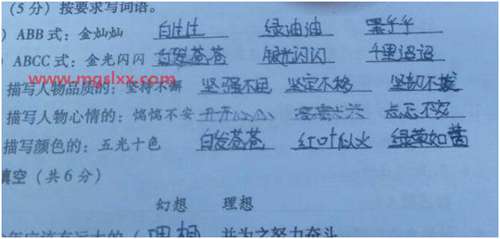 (5分) 按要求写词语。
) ABB 式：金灿灿 白生生 绿油油 黑乎乎
) ABCC 式：金光闪闪 白发苍苍 银光闪闪 千里迢迢
www.mgslxx.com
描写人物品质的：坚持不懈 坚强不屈 坚定不移 坚韧不拔
描写人物心情的：惴惴不安
描写颜色的：五光十色 白发苍苍 红叶似火 绿草如茵
填空 (共6分)
幻想 理想
理想 并为之努力奋斗